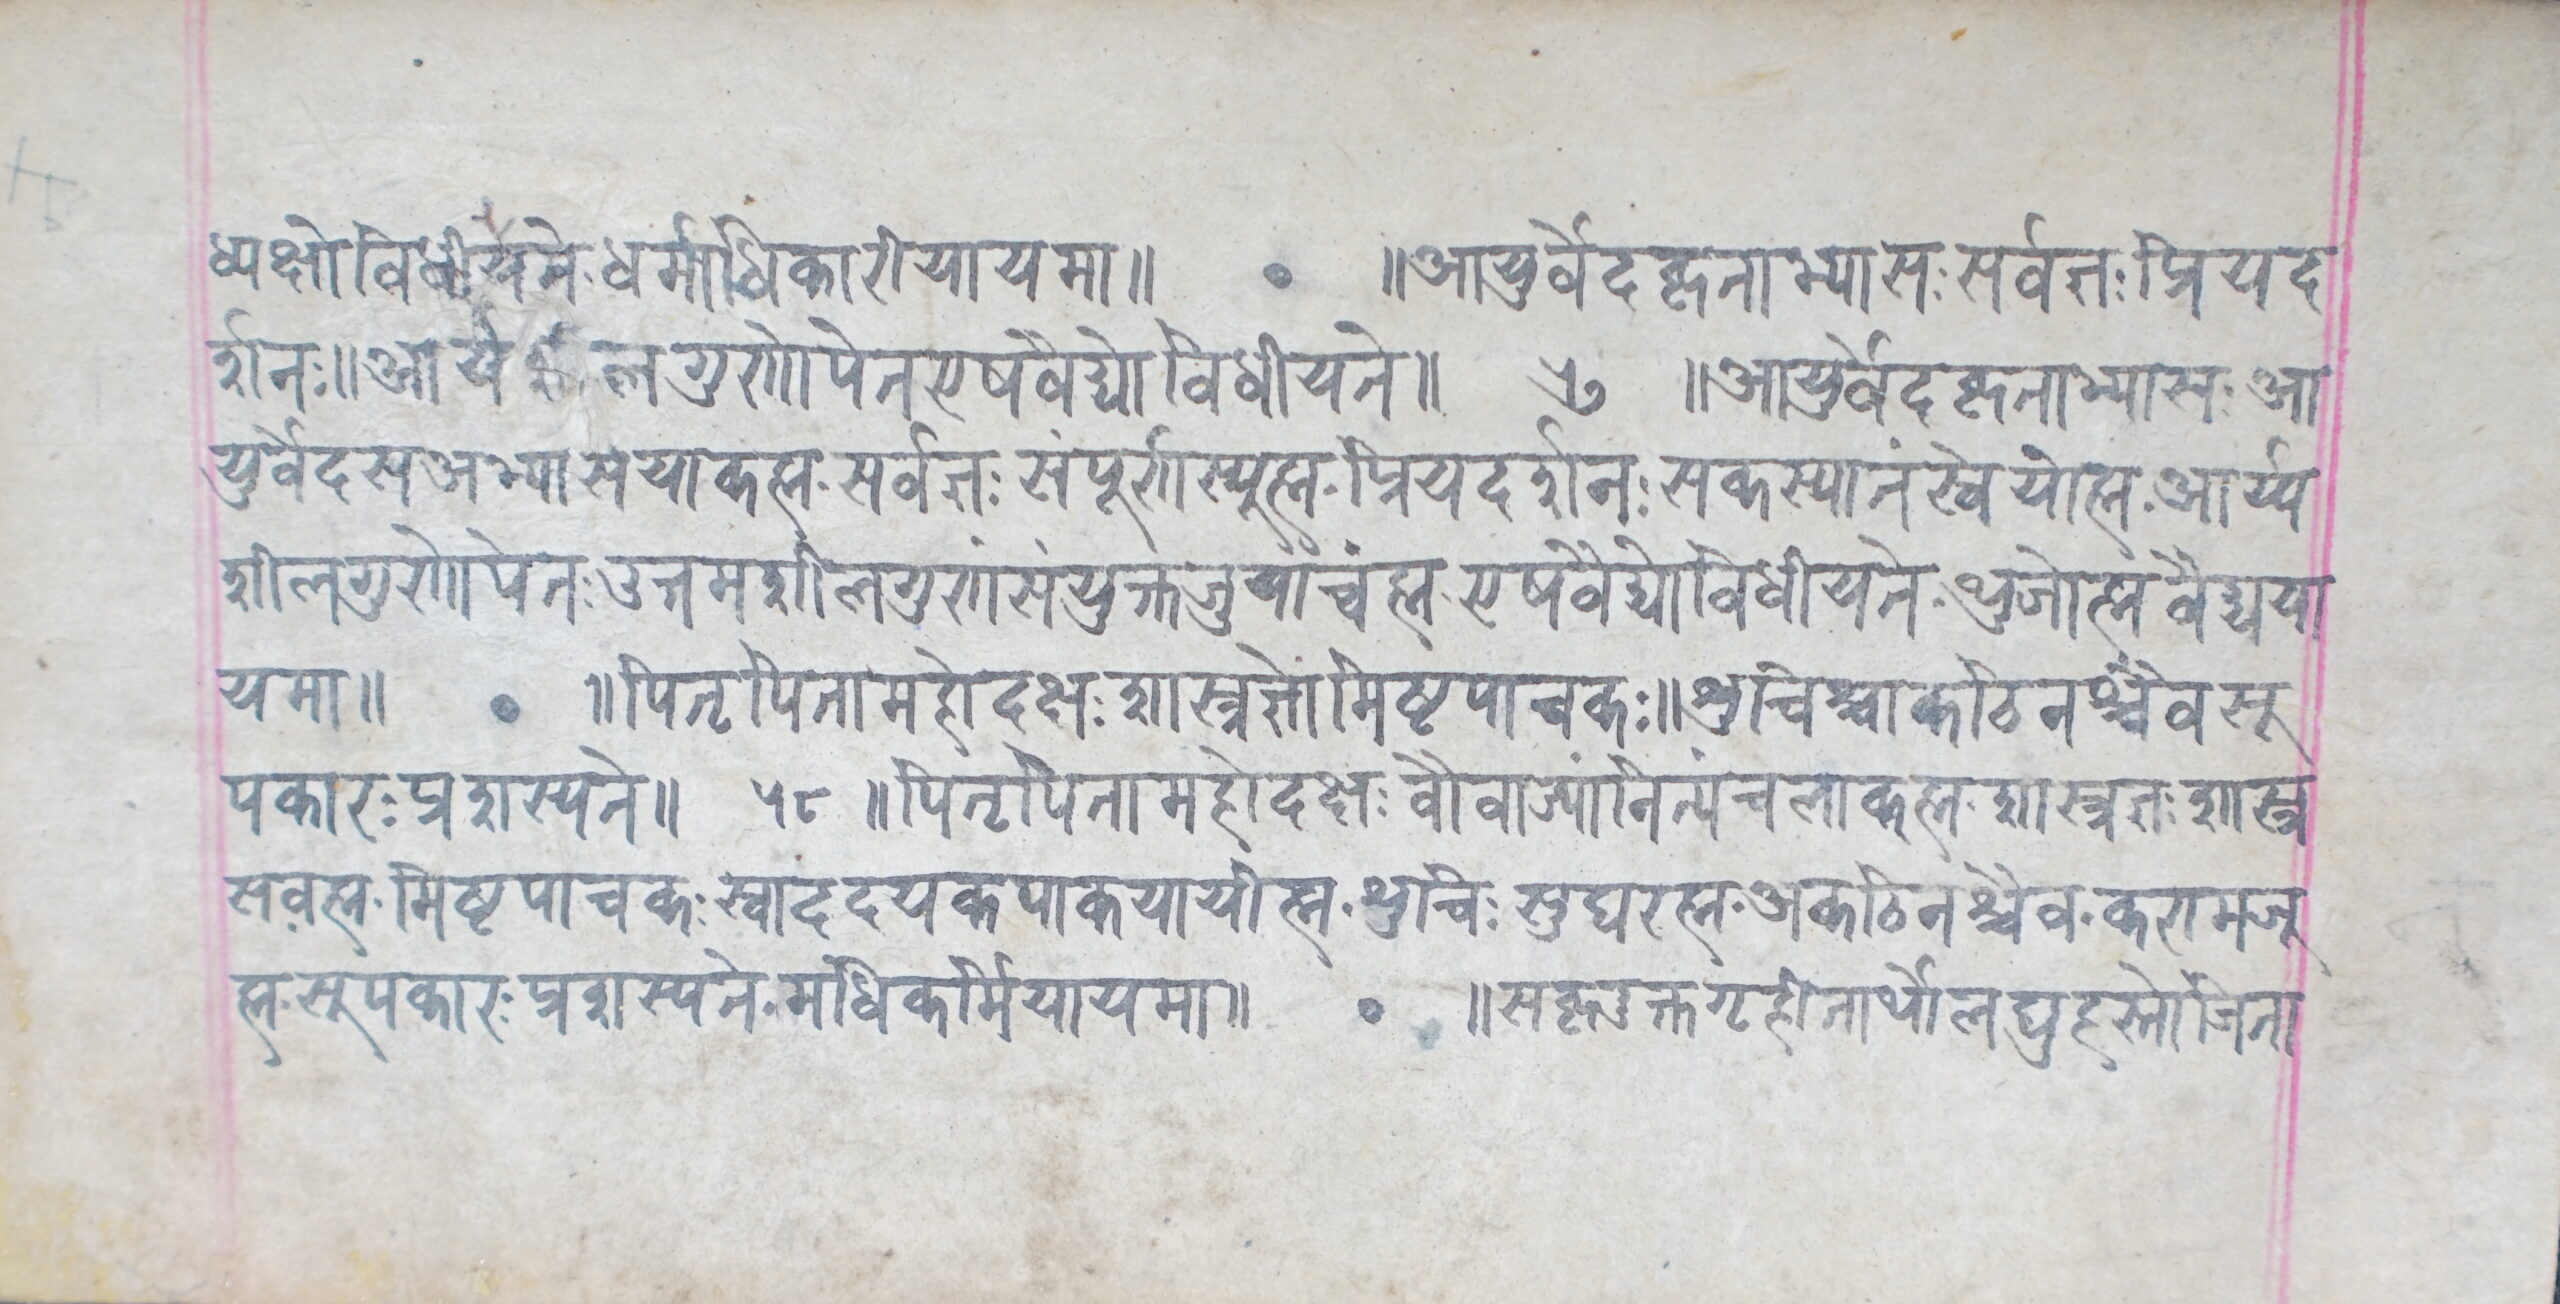 ध्यक्षो विधीयते. धर्माधिकारीयायमा॥ • ॥आयुर्वेदकृताभ्यासः सर्वज्ञः प्रियद
र्शनः॥आर्यशीलगुणोपेत एष वैद्यो विधीयते॥ ५७ ॥आयुर्वेदकृताभ्यासः आ
युर्वेदस अभ्यास याकह्म. सर्वज्ञः संपूर्णस्यूह्म. प्रियदर्शनः सकस्यानं स्वेयोह्म. आर्य्य
शीलगुणोपेतः उत्तमशीलगुणसंयुक्त जुयांच्वंह्म. एष वैद्यो विधीयते. थुजोह्म वैद्यया
यमा॥ • ॥पितृपितामहो दक्षः शास्त्रज्ञो मिष्टपाचकः॥शुचिश्चाकठिनश्चैव सू
पकारः प्रशस्यते॥ ५८ ॥पितृपितामहो दक्षः बौबाज्यां नित्यं चलाकह्म. शास्त्रज्ञः शास्त्र
सवह्म. मिष्टपाचकः स्वाददयक पाकयायीह्म. शुचिः सुघरह्म. अकठिनश्चैव. करामजू
ह्म. सूपकारः प्रशस्यते. मधिकर्मियायमा॥ • ॥सकृउक्तगृहीतार्थो लघुहस्तो जिता